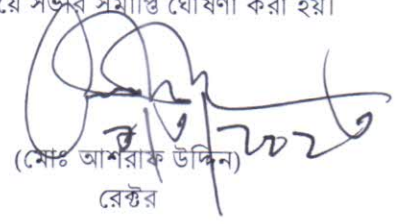 য়ে সভার সমাপ্তি ঘোষণা করা হয়।
(মোঃ আশরাফ উদ্দিন)
রেক্টর